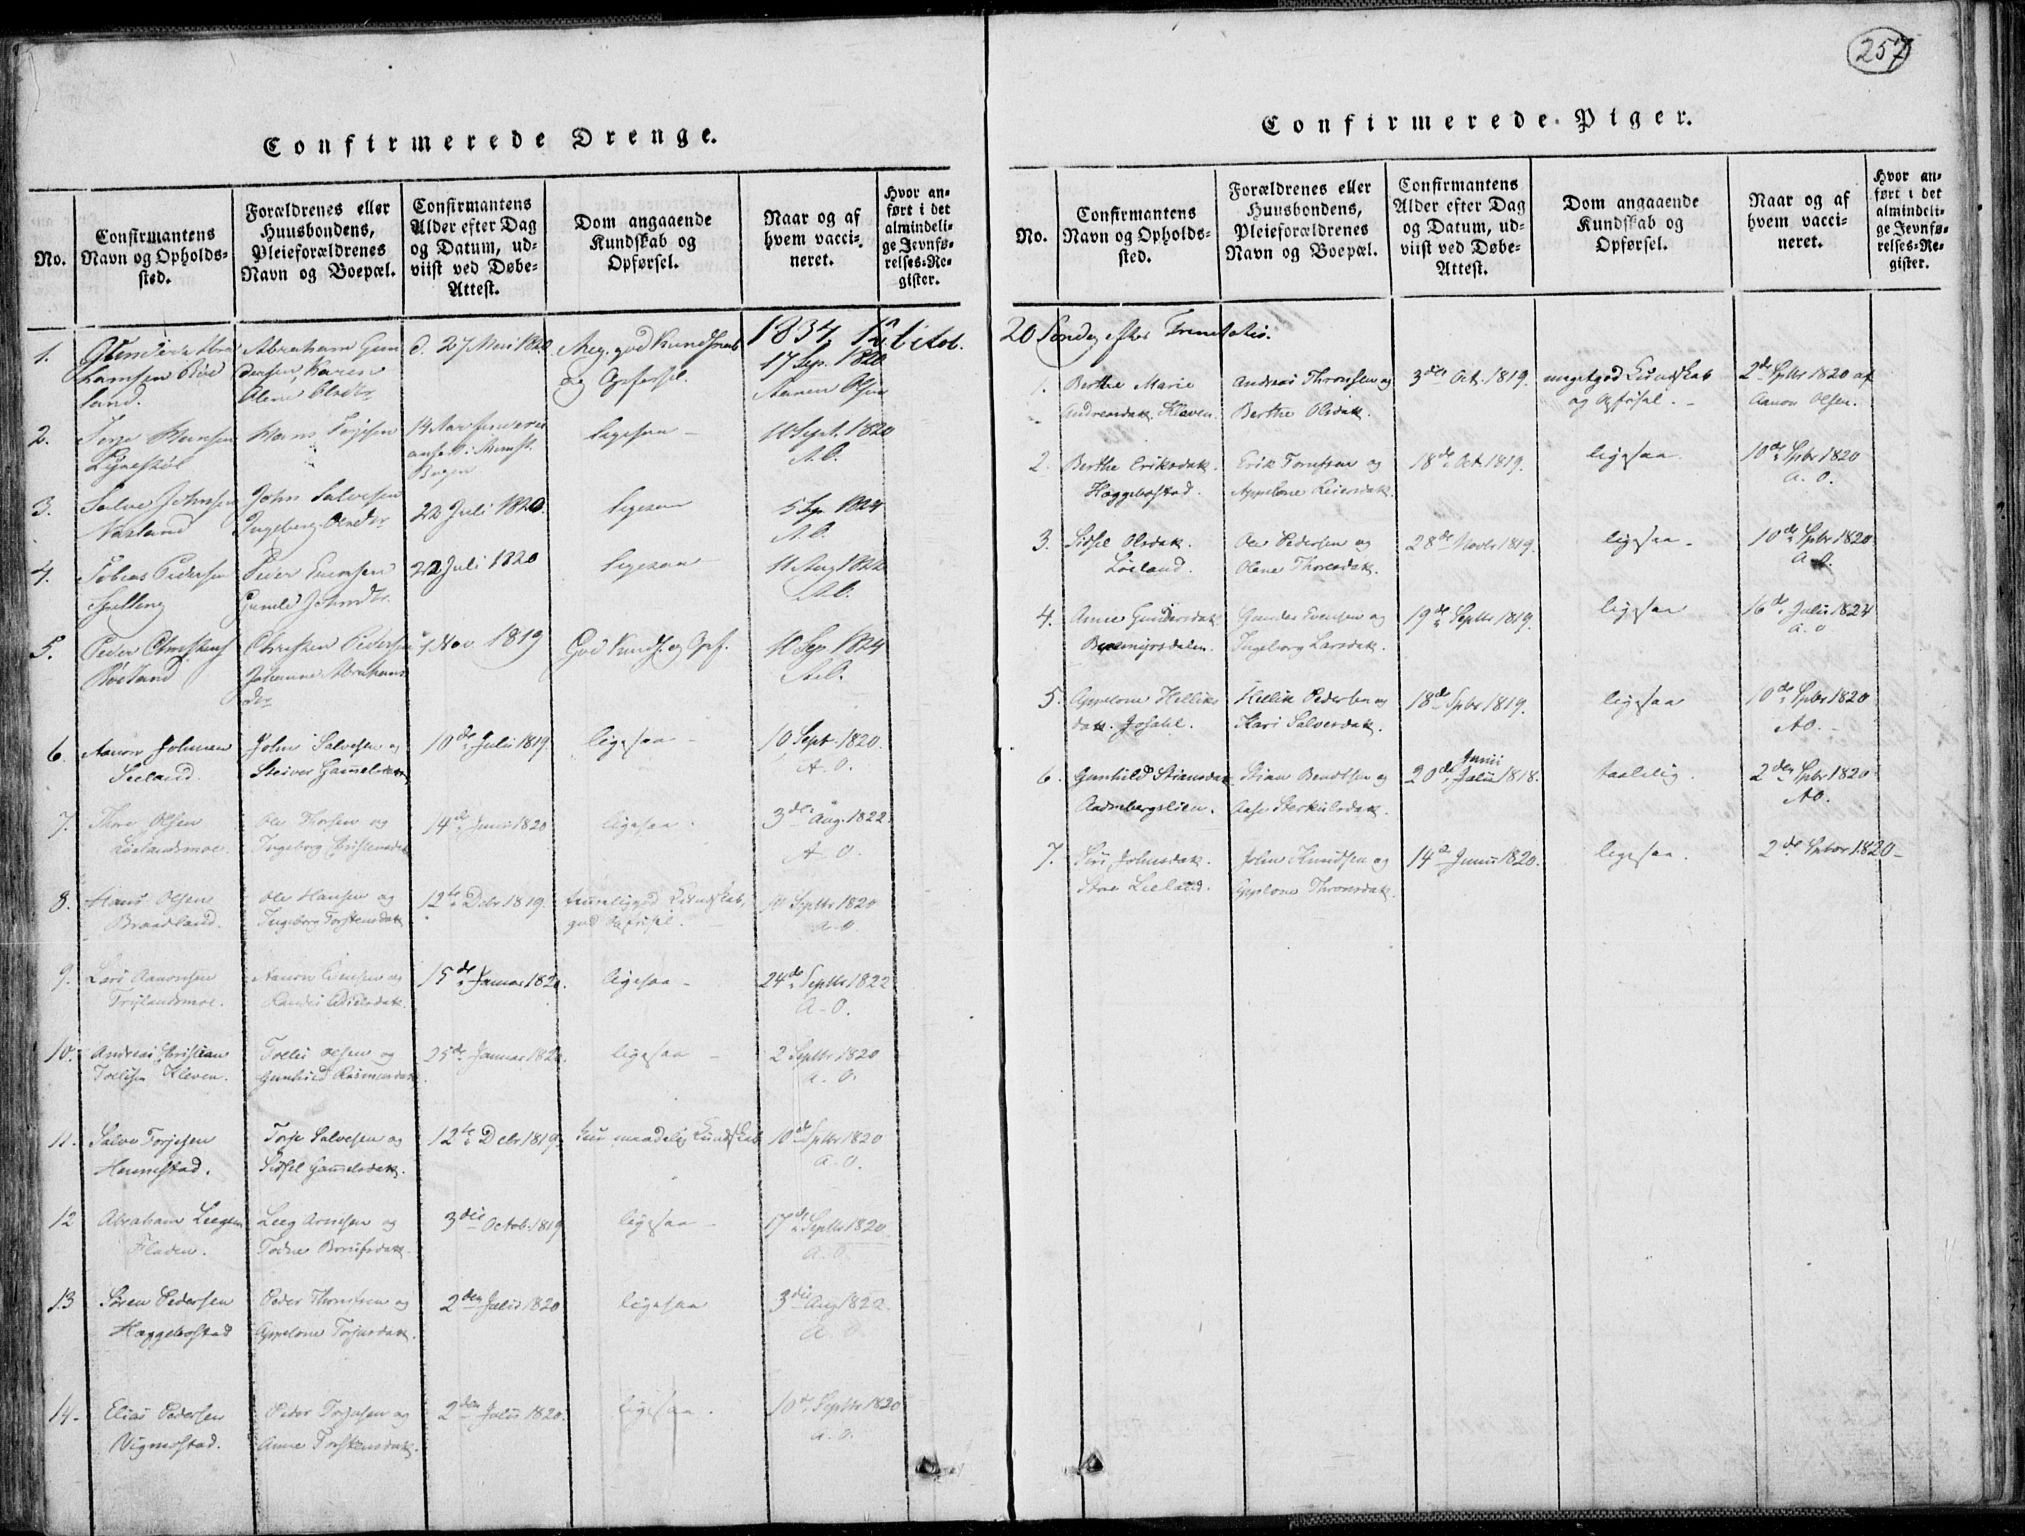 257
Confirmerede Drenge.
No.
Confirmantens
Navn og Opholds-
sted.
Forældrenes eller
Huusbondens,
Pleieforældrenes
Navn og Boepæl.
Confirmantens
Alder efter Dag
og Datum, ud-
viist ved Døbe-
Attest.
Dom angaaende
Kundskab og
Opførsel.
Naar og af
hvem vacci-
neret.
Hvor an-
ført i det
almindeli-
ge Jevnfø-
relses-Re-
gister.
1834, 12 Octob.
1.
Abraham Gun
dersen, Karen
27 Mai 1820
Meg. god Kundskab
og Opførsel.
17 Sep. 1820
Aanen Olsen
2.
Terje Hansen
Hans Terjesen
ligesaa -
10 Sept. 1820
A.O.
3.
Salve Johnsen
John Salvesen
Ingeborg
22 Juli 1820.
ligesaa
5 Sep. 1824
A.O.
4.
Tobias Pedersen
Peder
22 Juli 1820
ligesaa
11 Aug 1822
A.O.
5.
Peder Christens
Christen Pedersen
Johanne Abrahams
dtr
7 Nov. 1819
God Kunds. og Opf.
10 Sep 1824
A.O.
6.
Aanon Johnsen
John Salvesen og
10de Julii 1819
ligesaa -
10 Sept. 1820.
A. O.
7.
Thore Olsen
Løelandsmoe.
Ole Thorsen og
Ingeborg Christensdatt
14de Junii 1820
ligesaa.
3die Aug. 1822.
A. O.
8.
Hans Olsen
Braadland.
Ole Hansen og
Ingeborg Torstensdatt
12te Debr 1819.
temmeliggod Kundskab,
god Opførsel.
10 Septbr 1820
A. O.
9.
Lars Aanonsen
Trylandsmoe.
Aanon Evensen og
15de Januar 1820.
ligesaa -
24de Septbr 1822
A. O.
10.
Andreas Christian
Tollisen Kleven.
Tollis Olsen og
Gunhild Rasmusdatt
25de Januar 1820.
ligesaa -
2 Septbr 1820
A. O.
11.
Salve Torjesen
Haunestad.
Torje Salvesen og
Sidsel Gamelsdatt.
12te Debr 1819
kun maadelig Kundskab
10de Septbr 1820
A. O.
12
Abraham Leegsen
Fladen.
Leeg Arnesen og
Todne
3die Octob. 1819
ligesaa -
17de Septbr 1820
A. O.
13
Søren Pedersen
Hæggebostad
Peder Thronsen og
Appelone Torjusdatt.
2den Julii 1820
ligesaa
3die Aug 1822.
A. O.
14.
Elias Pedersen
Vigmostad.
Peder Torjusen og
Anne Torstensdatt.
2den Julii 1820.
ligesaa.
10de Septbr 1820
A. O.
Confirmerede Piger.
No.
Confirmantens
Navn og Opholds-
sted.
Forældrenes eller
Huusbondens,
Pleieforældrenes
Navn og Boepæl.
Confirmantens
Alder efter Dag
og Datum, ud-
viist ved Døbe-
Attest.
Dom angaaende
Kundskab og
Opførsel.
Naar og af
hvem vacci-
neret.
Hvor an-
ført i det
almindeli-
ge Jevnfø-
relses-Re-
gister.
20 Søndag efter Trinitatis.
1.
Berthe Marie
Andreasdatt. Kleven.
Andreas Thronsen og
Berthe Olsdatt.
3die Oct. 1819.
megetgod Kundskab
og Opførsel. -
2de Septbr 1820 af
Aanon Olsen.
2.
Berthe Eriksdatt.
Hæggebostad.
Erik Tomsen og
Appelone Leiersdatt.
18de Oct. 1819.
ligesaa.
10de Spbr 1820
A. O.
3.
Sidsel Olsdatt.
Løeland.
Ole Pedersen og
Olene Thoresdatt.
28de Novbr 1819.
ligesaa -
10de Spbr 1820
A. O.
4.
Anne Gundersdatt
Gunder Evensen og
Ingeborg Larsdatt.
19de Septbr 1819.
ligesaa
16de Julii 1824
A. O
5.
Appelone Helliks
datt. Josdahl.
Hellik Pedersen og
Kari Salvesdatt.
18de Spbr 1819.
ligesaa
10de Spbr 1820
AO. -
6.
Gunhild Stiansdatt
Aadnebergslien.
Stian Bendtsen og
Aase Sterkulsdatt.
Junii
20de Julii 1818.
taalelig.
2den Spbr 1820
AO.
7.
Siri Johnsdatt.
Store Leeland.
John Knudsen og
Appelone Thronsdatt.
14de Junii 1820.
ligesaa.
2de Spbr 1820 -